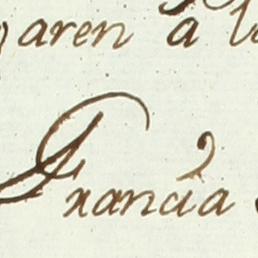 garen â la
Francia